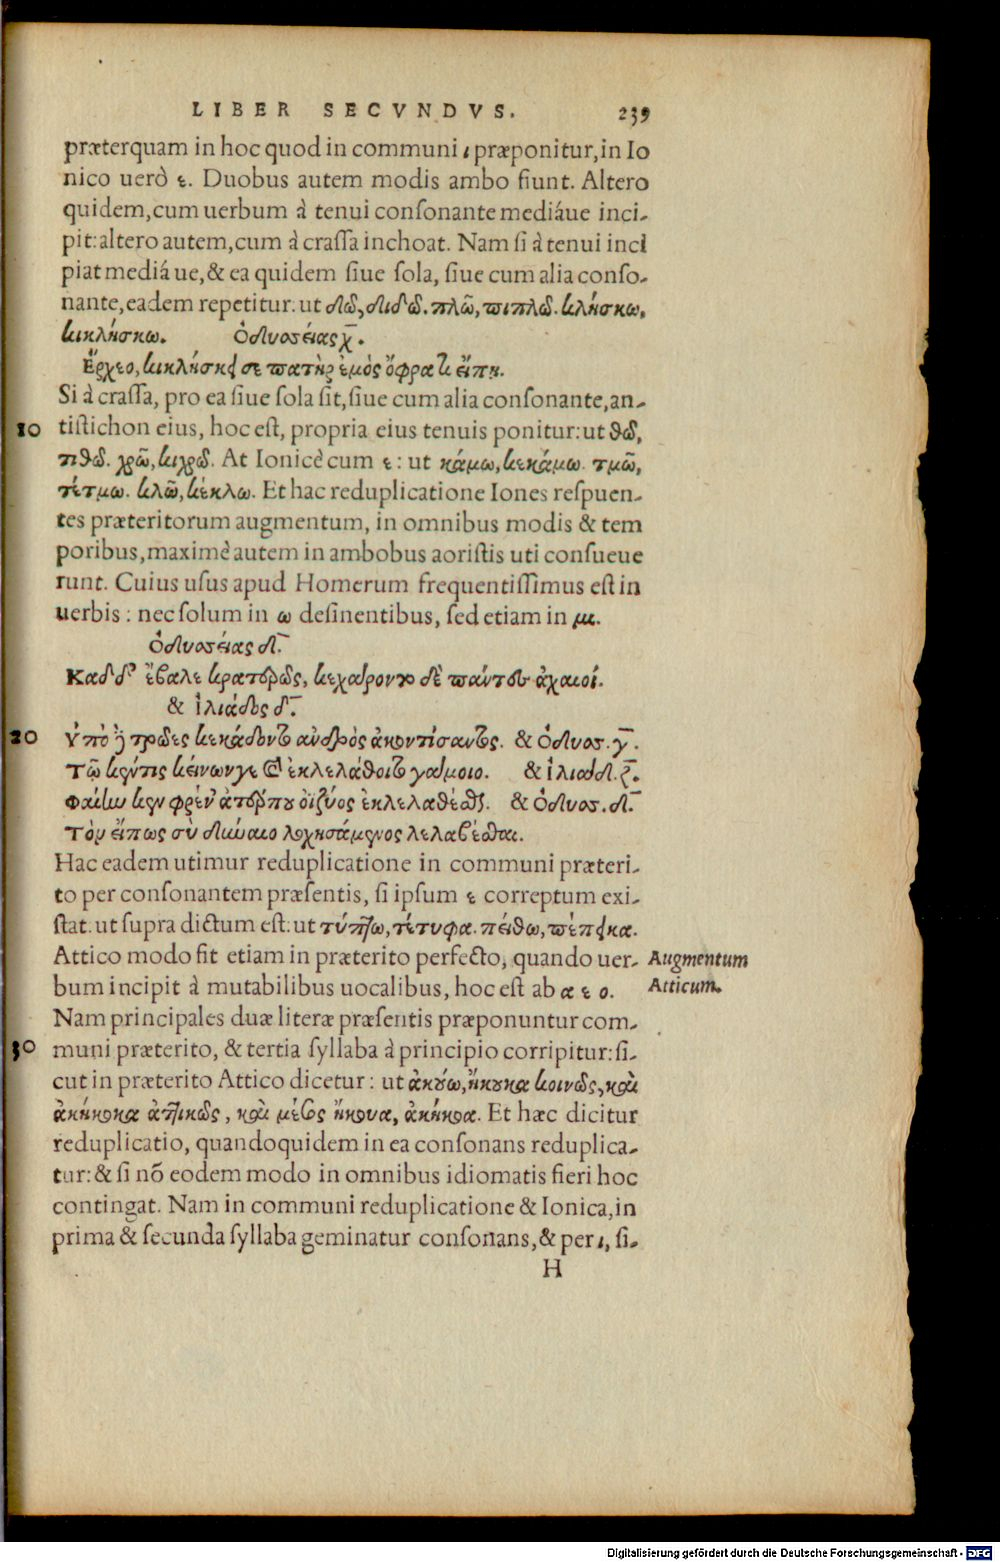 LIBER SECVNDVS. 239
præterquam in hoc quod in communi ι præponitur, in Io
nico uerò ε. Duobus autem modis ambo fiunt. Altero
quidem, cum uerbum à tenui consonante mediáue inci-
pit: altero autem, cum à crassa inchoat. Nam si à tenui inci
piat mediá ue, & ea quidem siue sola, siue cum alia conso-
nante, eadem repetitur. ut δῶ, διδῶ. πλῶ, πιπλῶ. κλήσκω,
κικλήσκω. Ὀδυσσείας χ̄.
Ἔρχεο, κικλήσκει σε πατὴρ ἐμὸς ὄφρα τι εἴπῃ.
Si à crassa, pro ea siue sola sit, siue cum alia consonante, an-
10 tistichon eius, hoc est, propria eius tenuis ponitur: ut θῶ,
τιθῶ. χρῶ, κιχρῶ. At Ionicè cum ε: ut κάμω, κεκάμω. τμῶ,
τέτμω. κλῶ, κέκλω. Et hac reduplicatione Iones respuen-
tes præteritorum augmentum, in omnibus modis & tem
poribus, maximè autem in ambobus aoristis uti consueue
runt. Cuius usus apud Homerum frequentissimus est in
uerbis: nec solum in ω desinentibus, sed etiam in μι.
Ὀδυσσείας δ̄.
Καδδ' ἔβαλε κρατερῶς, κεχαροντο δὲ πάντες ἀχαιοί.
& Ἰλιάδος δ̄.
20 Ὑπὸ δὲ τρῶες κεκάδοντο ἀνδρὸς ἀκοντίσαντος. & Ὀδυσ. γ̄.
Τῷ κέν τις κείνων γε καὶ ἐκλελάθοιτο γάμοιο. & Ἰλιάδ. ζ̄.
Φαίην κεν φρέν' ἀτέρπου ὀϊζύος ἐκλελαθέσθαι. & Ὀδυσ. δ̄.
Τὸν εἴπως σὺ δύναιο λοχησάμενος λελαβέσθαι.
Hac eadem utimur reduplicatione in communi præteri-
to per consonantem præsentis, si ipsum ε correptum exi-
stat. ut supra dictum est: ut τύπτω, τέτυφα. πείθω, πέπεικα.
Attico modo fit etiam in præterito perfecto, quando uer- Augmentum
bum incipit à mutabilibus uocalibus, hoc est ab α ε ο. Atticum.
Nam principales duæ literæ præsentis præponuntur com-
30 muni præterito, & tertia syllaba à principio corripitur: si-
cut in præterito Attico dicetur: ut ἀκούω, ἤκουκα κοινῶς, καὶ
ἀκήκοκα ἀττικῶς, καὶ μέσος ἤκουα, ἀκήκοα. Et hæc dicitur
reduplicatio, quandoquidem in ea consonans reduplica-
tur: & si nõ eodem modo in omnibus idiomatis fieri hoc
contingat. Nam in communi reduplicatione & Ionica, in
prima & secunda syllaba geminatur consonans, & per ι, si-
H
Digitalisierung gefördert durch die Deutsche Forschungsgemeinschaft - DFG